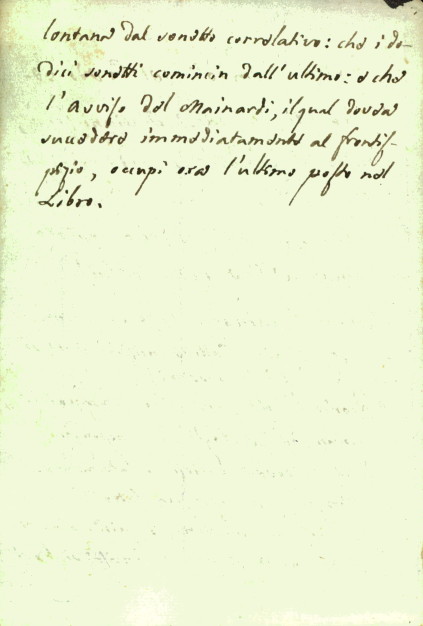 lontana dal sonetto correlativo: che i do-
dici sonetti comincin dall'ultimo: e che
l'Avviso del Mainardi, il qual dovea
succedere immediatamente al frontis-
pizio, occupi ora l'ultimo posto nel
Libro.